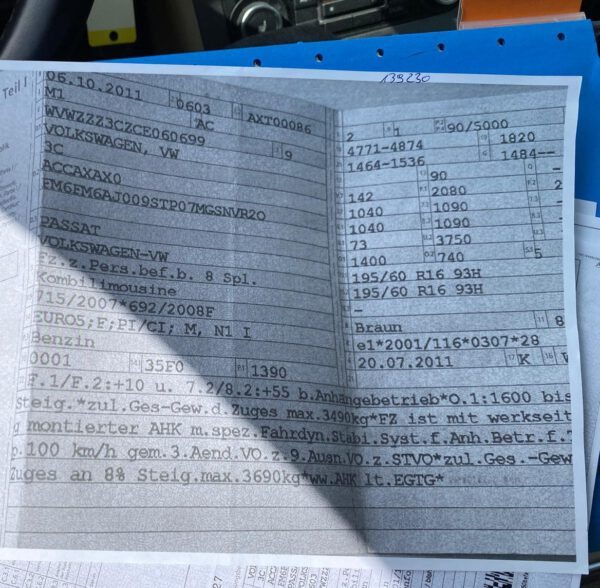 139230
Teil I
06.10.2011 0603 AXT00086 2 1 90/5000
M1 AC 4771-4874 1820
WVWZZZ3CZCE060699 9 1464-1536 1484--
VOLKSWAGEN, VW 90 -
3C 142 2080
ACCAXAX0 1040 1090 -
FM6FM6AJ009STP07MGSNVR2O 1040 1090 -
73 3750
PASSAT 1400 740 5
VOLKSWAGEN-VW 195/60 R16 93H
Fz.z.Pers.bef.b. 8 Spl. 195/60 R16 93H
Kombilimousine -
715/2007*692/2008F Braun 8
EURO5;F;PI/CI; M, N1 I e1*2001/116*0307*28
Benzin 20.07.2011 K
0001 35F0 1390
F.1/F.2:+10 u. 7.2/8.2:+55 b.Anhängebetrieb*O.1:1600 bis
Steig.*zul.Ges-Gew.d.Zuges max.3490kg*FZ ist mit werkseit
g montierter AHK m.spez.Fahrdyn.Stabi.Syst.f.Anh.Betr.f.
p.100 km/h gem.3.Aend.VO.z.9.Ausn.VO.z.STVO*zul.Ges.-Gew
Zuges an 8% Steig.max.3690kg*ww.AHK lt.EGTG*